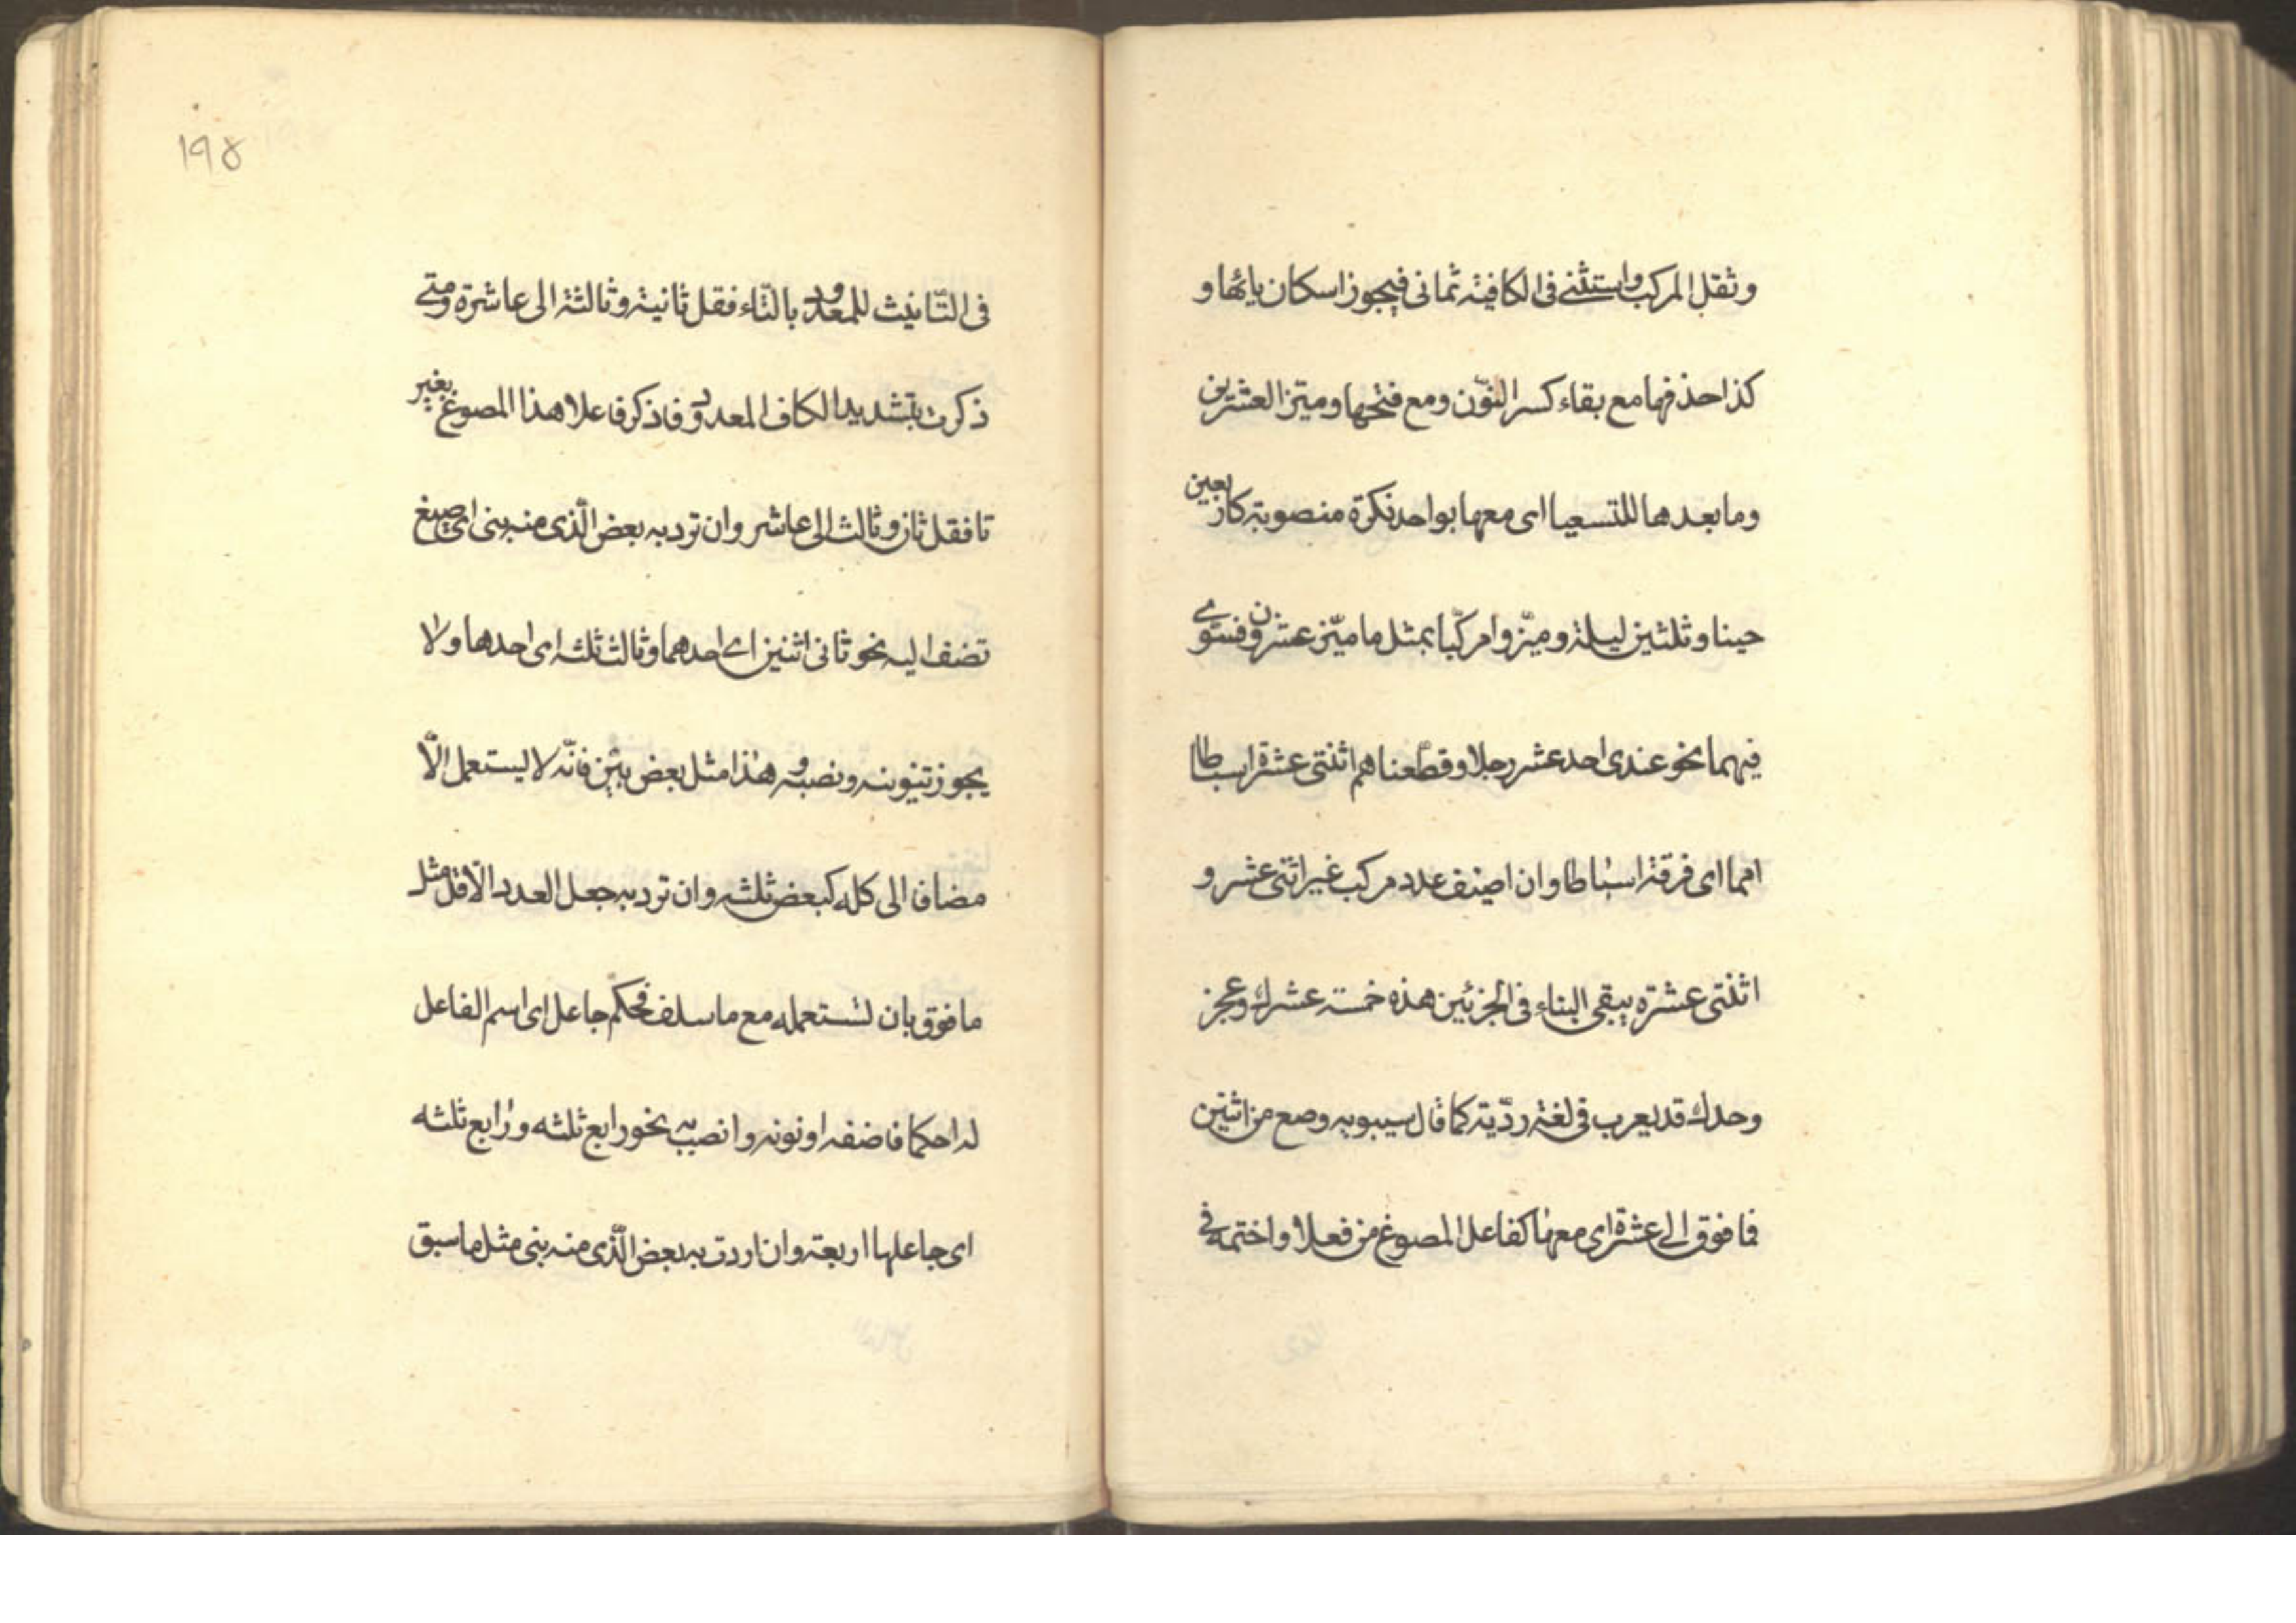 وثقل المركب واستثنى فى الكافية ثمانى فيجوز اسكان يائها و
كذا حذفها مع بقاء كسر النّون ومع فتحها وميّز العشرين
وما بعدها للتسعيا اى معها بواحد نكرة منصوبة كاربعين
حينا وثلثين ليلة وميّزوا مركّبا بمثل ما ميّز عشرون فسوّى
فيهما نحو عندى احد عشر رجلا وقطّعناهم اثنتى عشرة اسباطا
امما اى فرقة اسباطا وان اضيف عدد مركب غير اثنى عشر و
اثنتى عشرة يبقى البناء فى الجزئين هذه خمسة عشرك وعجز
وحدك قد يعرب فى لغة رديّة كما قال سيبويه وصغ من اثنين
فما فوق الى عشرة اى معها كفاعل المصوغ من فعلا واختمه فى
١٩٥
فى التّانيث للمعدود بالتّاء فقل ثانية وثالثة الى عاشرة ومتى
ذكرت بتشديد الكاف المعدود فاذكر فاعلا هذا المصوغ بغير
تا فقل ثان وثالث الى عاشر وان ترد به بعض الّذى منه بنى اى صيغ
تضف اليه نحو ثانى اثنين اى احدهما وثالث ثلثه اى احدها ولا
يجوز تنوينه ونصبه وهذا مثل بعض بيّن فانّه لا يستعمل الّا
مضافا الى كله كبعض ثلثه وان ترد به جعل العدد الاقل مثل
ما فوق بان تستعمله مع ما سلف فحكم جاعل اى اسم الفاعل
له احكما فاضفه او نونه وانصب به نحو رابع ثلثه ورابع ثلثه
اى جاعلها اربعة وان اردت به بعض الّذى منه بنى مثل ما سبق